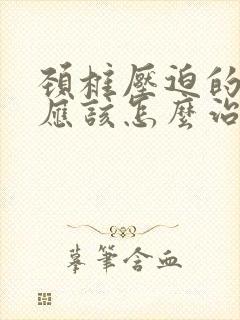 頚椎壓迫的
應該怎麼治
摹筆含血